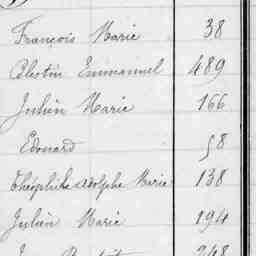 François Marie 38
Célestin Emmanuel 489
Julien Marie 166
Edouard 58
Théophile Adolphe Marie 138
Julien Marie 194
248